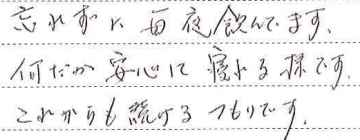 忘れずに毎夜飲んでます、
何だか安心して寝れる様です。
これからも続けるつもりです。